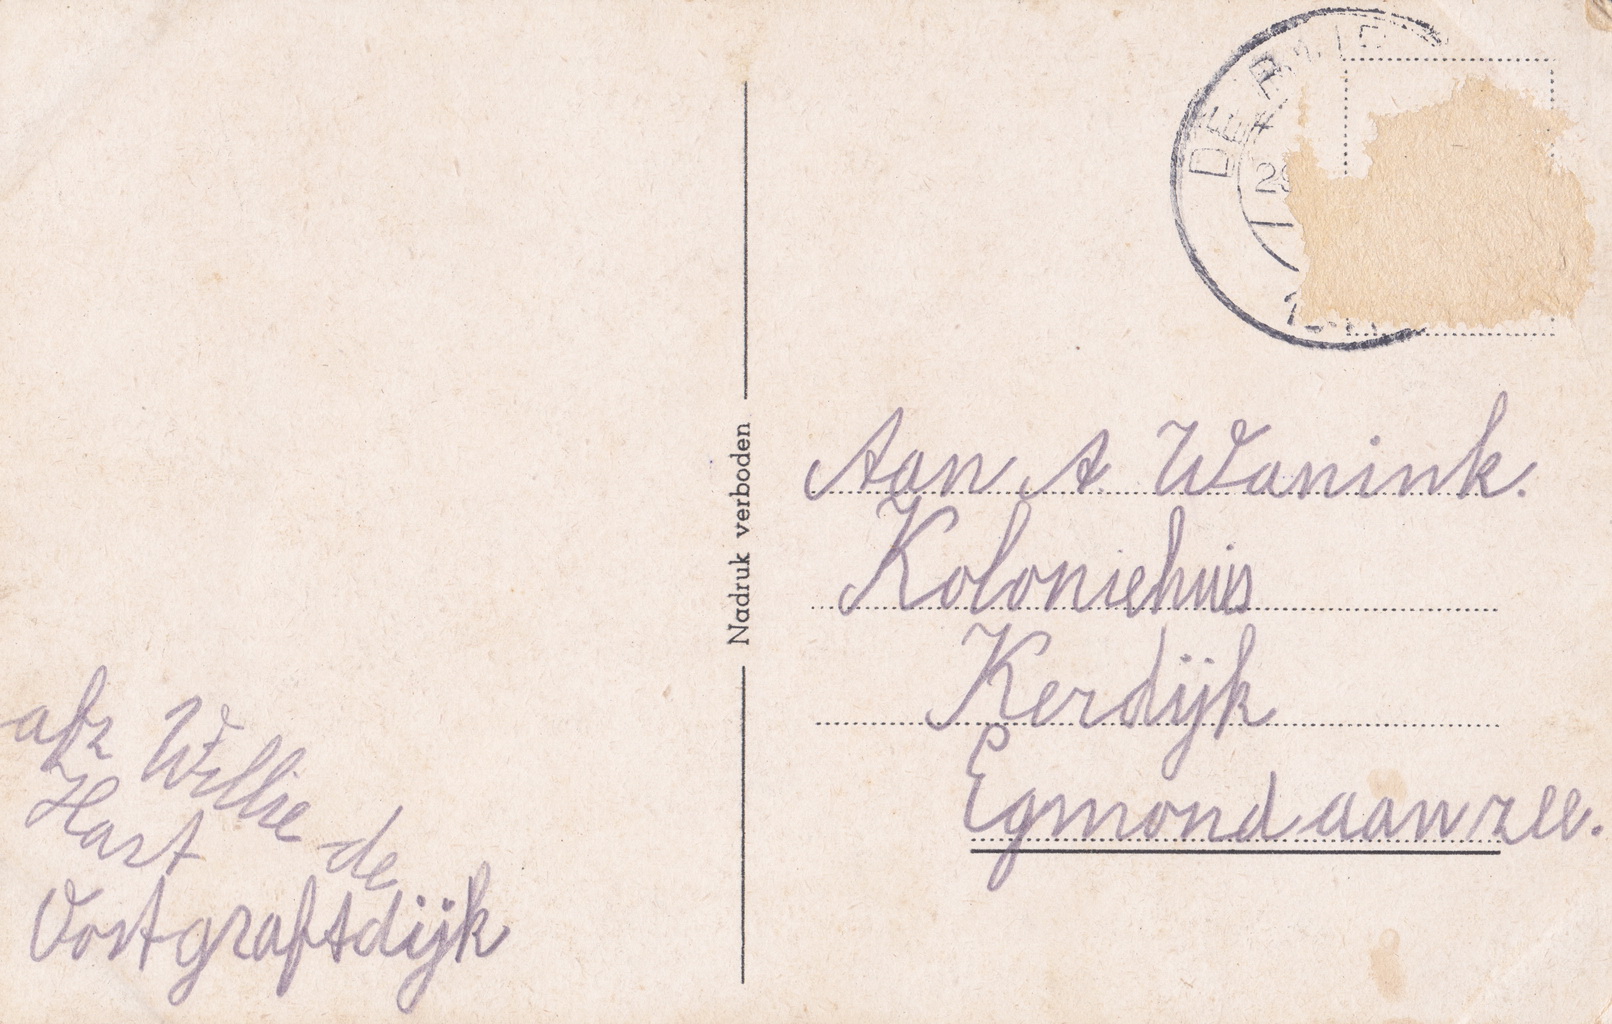 DE R
29
Nadruk verboden
Aan A Wanink.
Koloniehuis
Kerdijk
Egmond aan zee.
afz Willie de
Hast
Oostgraftdijk